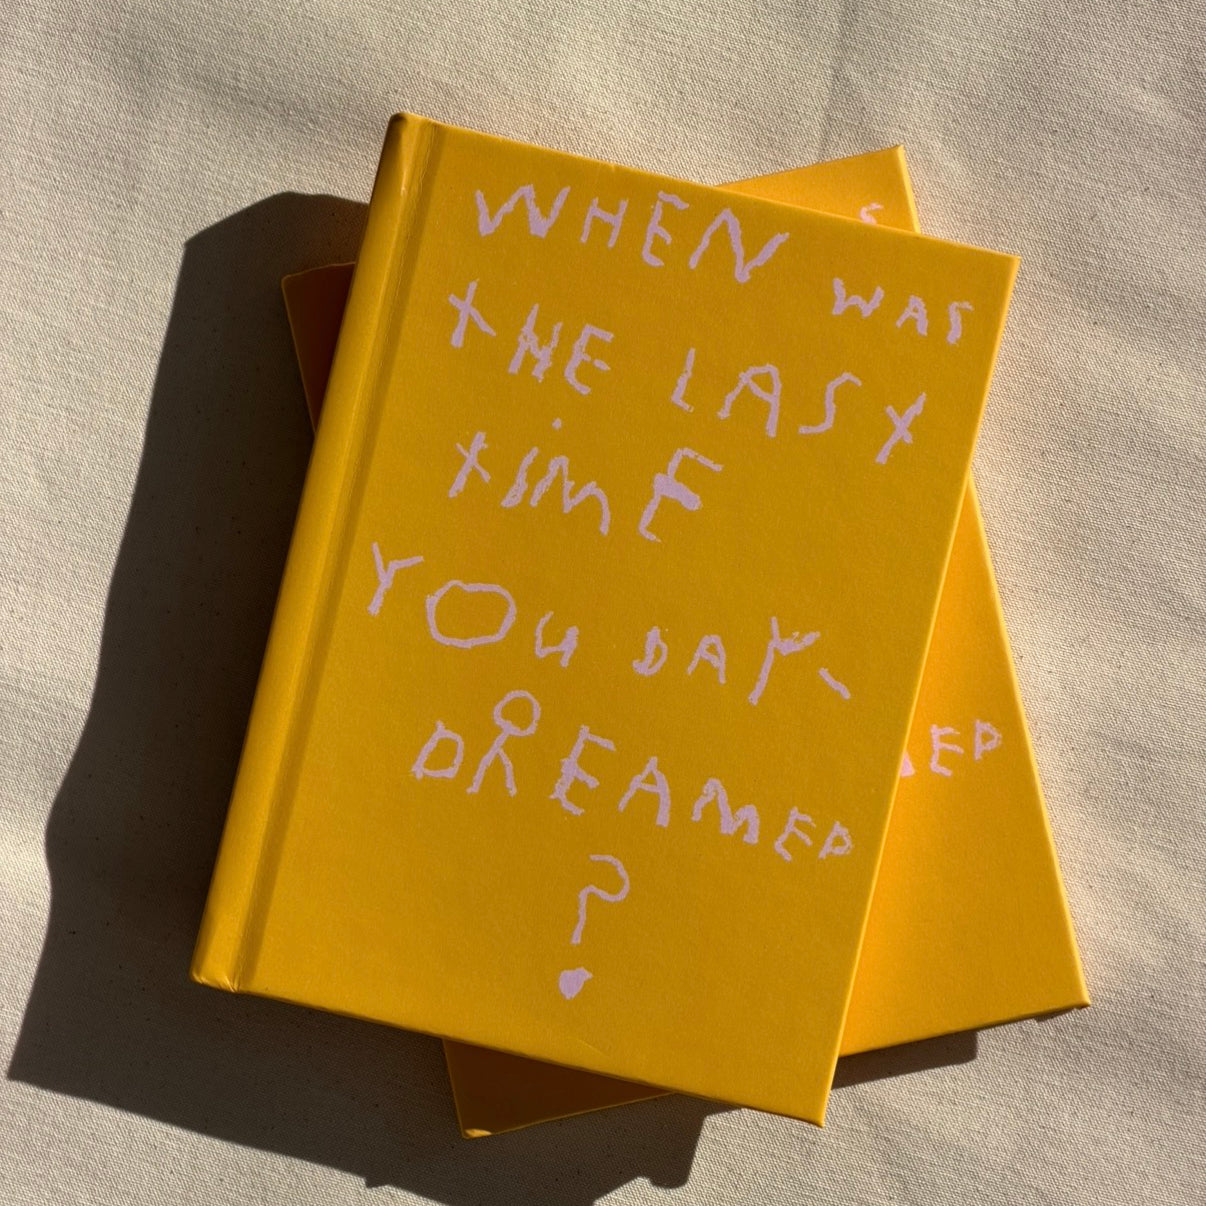 WHEN WAS
THE LAST
TiME
YOU DAY-
DREAMED
?
S
ED